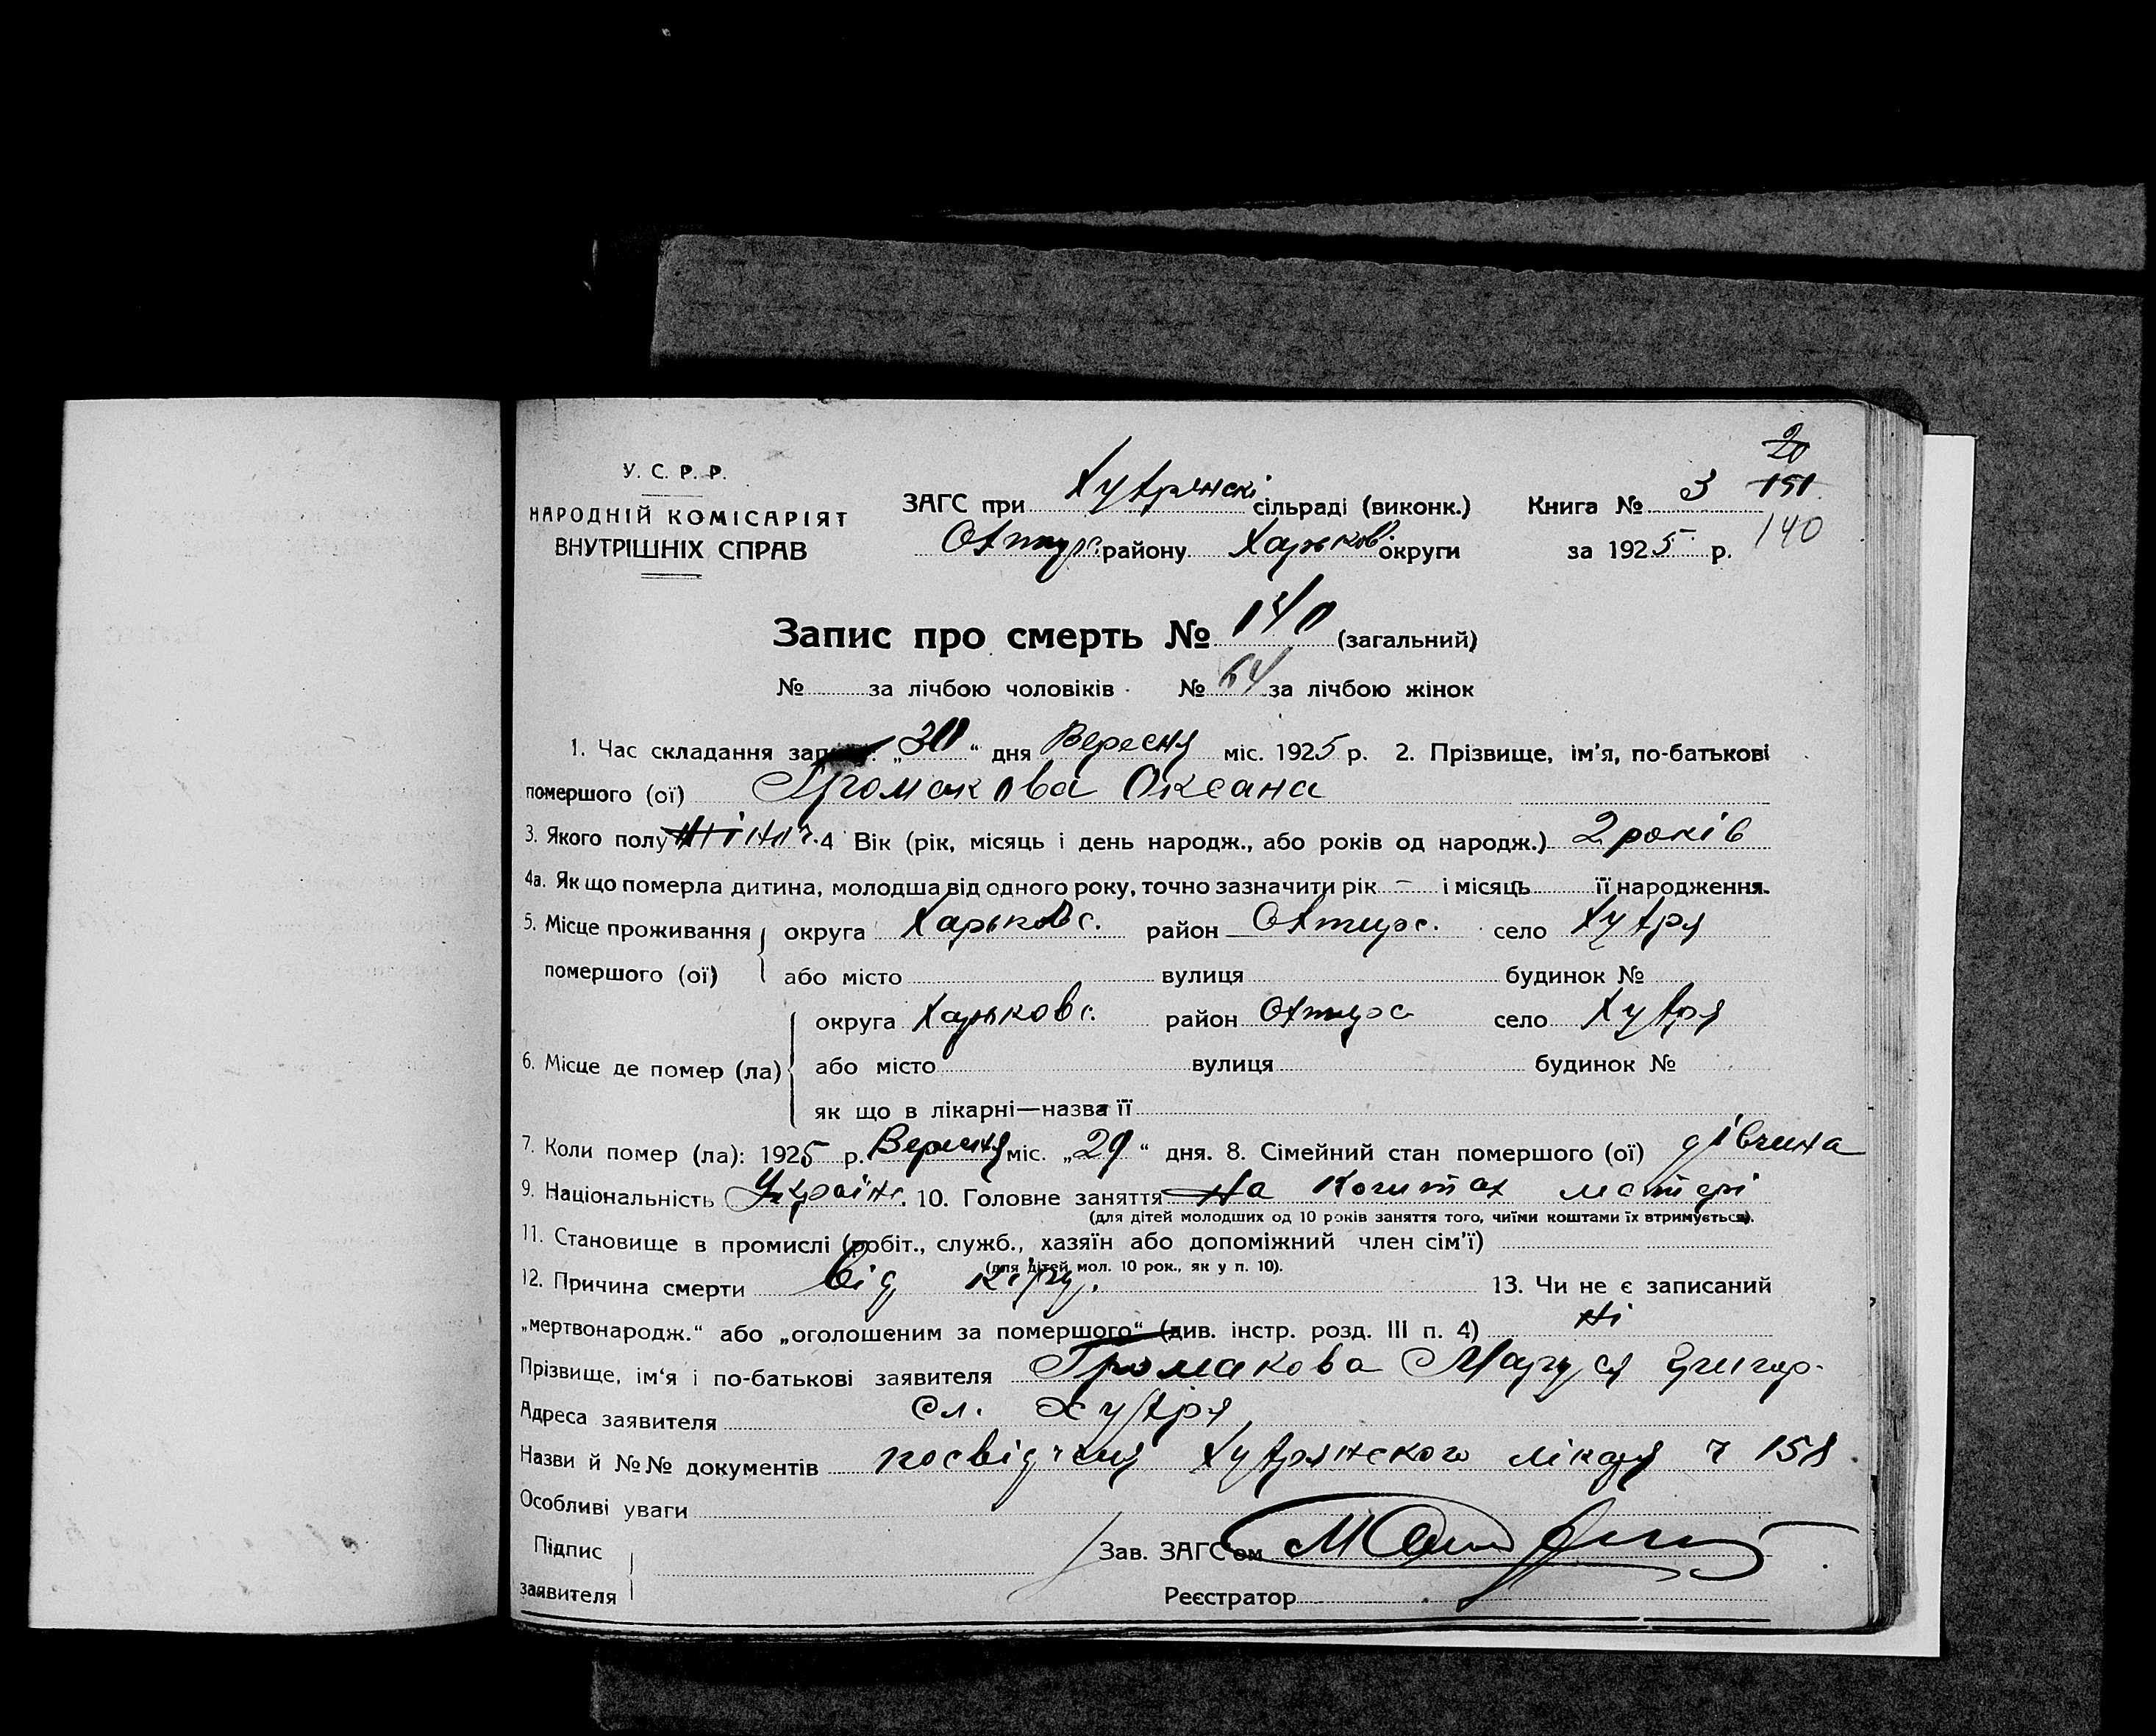 20
У. С. Р. Р.
ЗАГС при Хухрянскі сільраді (виконк.) Книга № 3 151
НАРОДНІЙ КОМІСАРІЯТ
ВНУТРІШНІХ СПРАВ
Охтирс. району Харьков. округи за 1925 р. 140
Запис про смерть № 140 (загальний)
№ за лічбою чоловіків № 64 за лічбою жінок
1. Час складання „30“ дня Вересня міс. 1925 р. 2. Прізвище, ім'я, по-батькові
помершого (ої) Громакова Оксана
3. Якого полу 4 Вік (рік, місяць і день народж., або років од народж.) 2 років
4а. Як що померла дитина, молодша від одного року, точно зазначити рік – і місяць її народження.
5. Місце проживання округа Харьковс. район Охтирс. село Хухря
помершого (ої) або місто вулиця будинок №
округа Харьковс. район Охтирс село Хухря
6. Місце де помер (ла) або місто вулиця будинок №
як що в лікарні—назва її
7. Коли помер (ла): 1925 р. Вересня міс. „29“ дня. 8. Сімейний стан помершого (ої) дівчина
9. Національність Україн. 10. Головне заняття На коштах матері
(для дітей молодших од 10 років заняття того, чиїми коштами їх втримується).
11. Становище в промислі (робіт., служб., хазяїн або допоміжний член сім'ї)
(для дітей мол. 10 рок., як у п. 10).
12. Причина смерти від кіру. 13. Чи не є записаний
„мертвонародж.“ або „оголошеним за помершого“ (див. інстр. розд. III п. 4) Ні
Прізвище, ім'я і по-батькові заявителя Громакова Маруся Григор.
Адреса заявителя Сл. Хухря
Назви й №№ документів посвідченя Хухрянского лікаря ч 158
Особливі уваги
Підпис
заявителя
Зав. ЗАГС'ом
Реєстратор